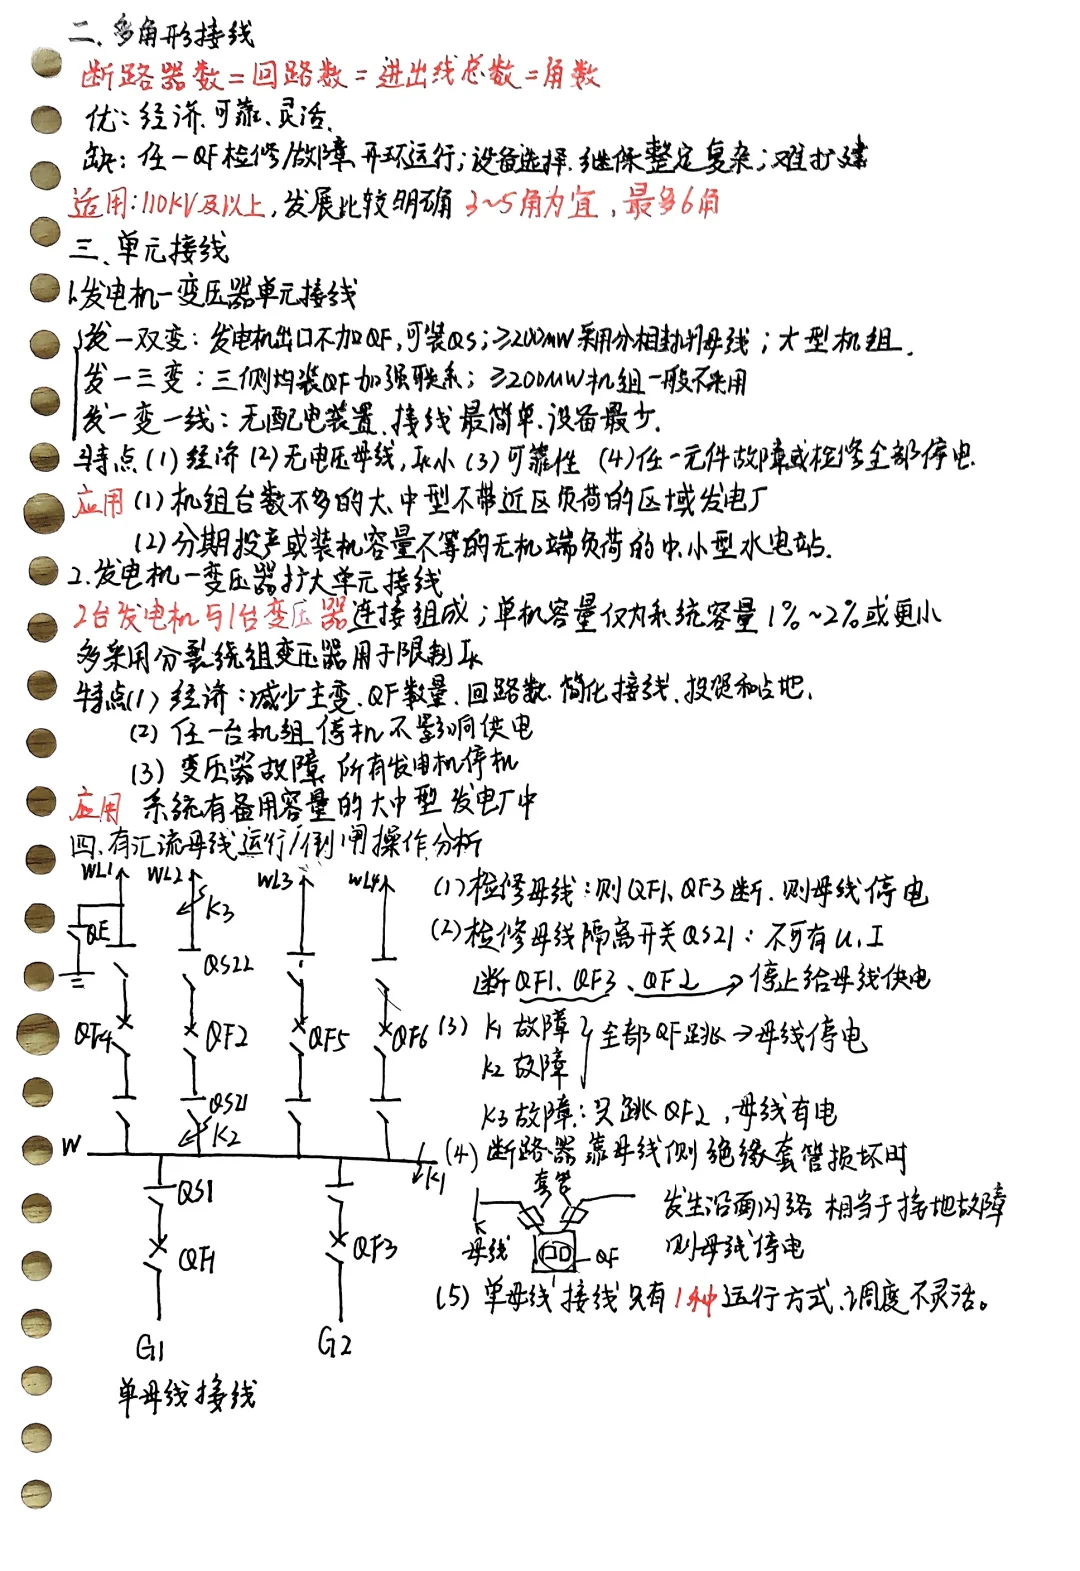 二、多角形接线
断路器数=回路数=进出线总数=角数
优：经济、可靠、灵活.
缺：任一QF检修/故障、开环运行；设备选择、继保整定复杂；难扩建
适用：110KV及以上，发展比较明确 3~5角为宜，最多6角
三、单元接线
1.发电机一变压器单元接线
发一双变：发电机出口不加QF,可装QS；≥200MW采用分相封闭母线；大型机组.
发一三变：三侧均装QF加强联系；≥200MW机组一般不采用
发一变一线：无配电装置、接线最简单、设备最少.
特点(1)经济(2)无电压母线,Ik小(3)可靠性 (4)任一元件故障或检修全部停电.
应用(1)机组台数不多的大、中型不带近区负荷的区域发电厂
(2)分期投产或装机容量不等的无机端负荷的中、小型水电站.
2.发电机一变压器扩大单元接线
2台发电机与1台变压器连接组成；单机容量仅为系统容量1%~2%或更小
多采用分裂绕组变压器用于限制Ik
特点(1)经济：减少主变、QF数量、回路数、简化接线、投资和占地.
(2)任一台机组停机不影响供电
(3)变压器故障、所有发电机停机
应用 系统有备用容量的大中型发电厂中
四、有汇流母线运行/倒闸操作分析
WL1 WL2 WL3 WL4
(1)检修母线：则QF1、QF3断、则母线停电
K3
QE
(2)检修母线隔离开关QS21：不可有U、I
QS22
断QF1、QF3、QF2→停止给母线供电
QF4 QF2 QF5 QF6
(3) K1故障
K2故障
全部QF跳→母线停电
QS21
K3故障：只跳QF2,母线有电
W K2 K1
(4)断路器靠母线侧绝缘套管损坏时
套管
QS1
K
母线
QF
发生沿面闪络 相当于接地故障
则母线停电
QF1 QF3
(5)单母线接线只有1种运行方式、调度不灵活。
G1 G2
单母线接线